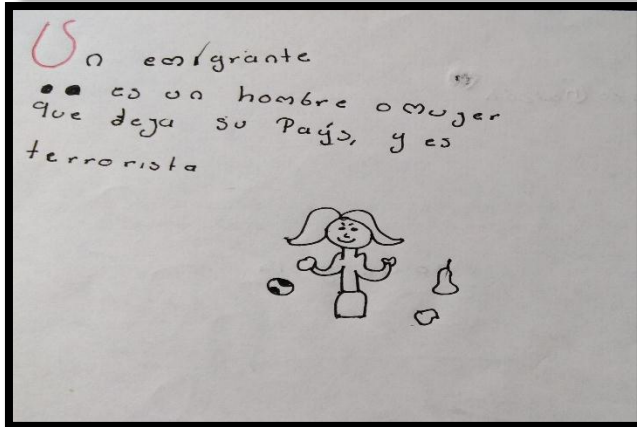 Un emigrante
es un hombre o mujer
que deja su Pays, y es
terrorista